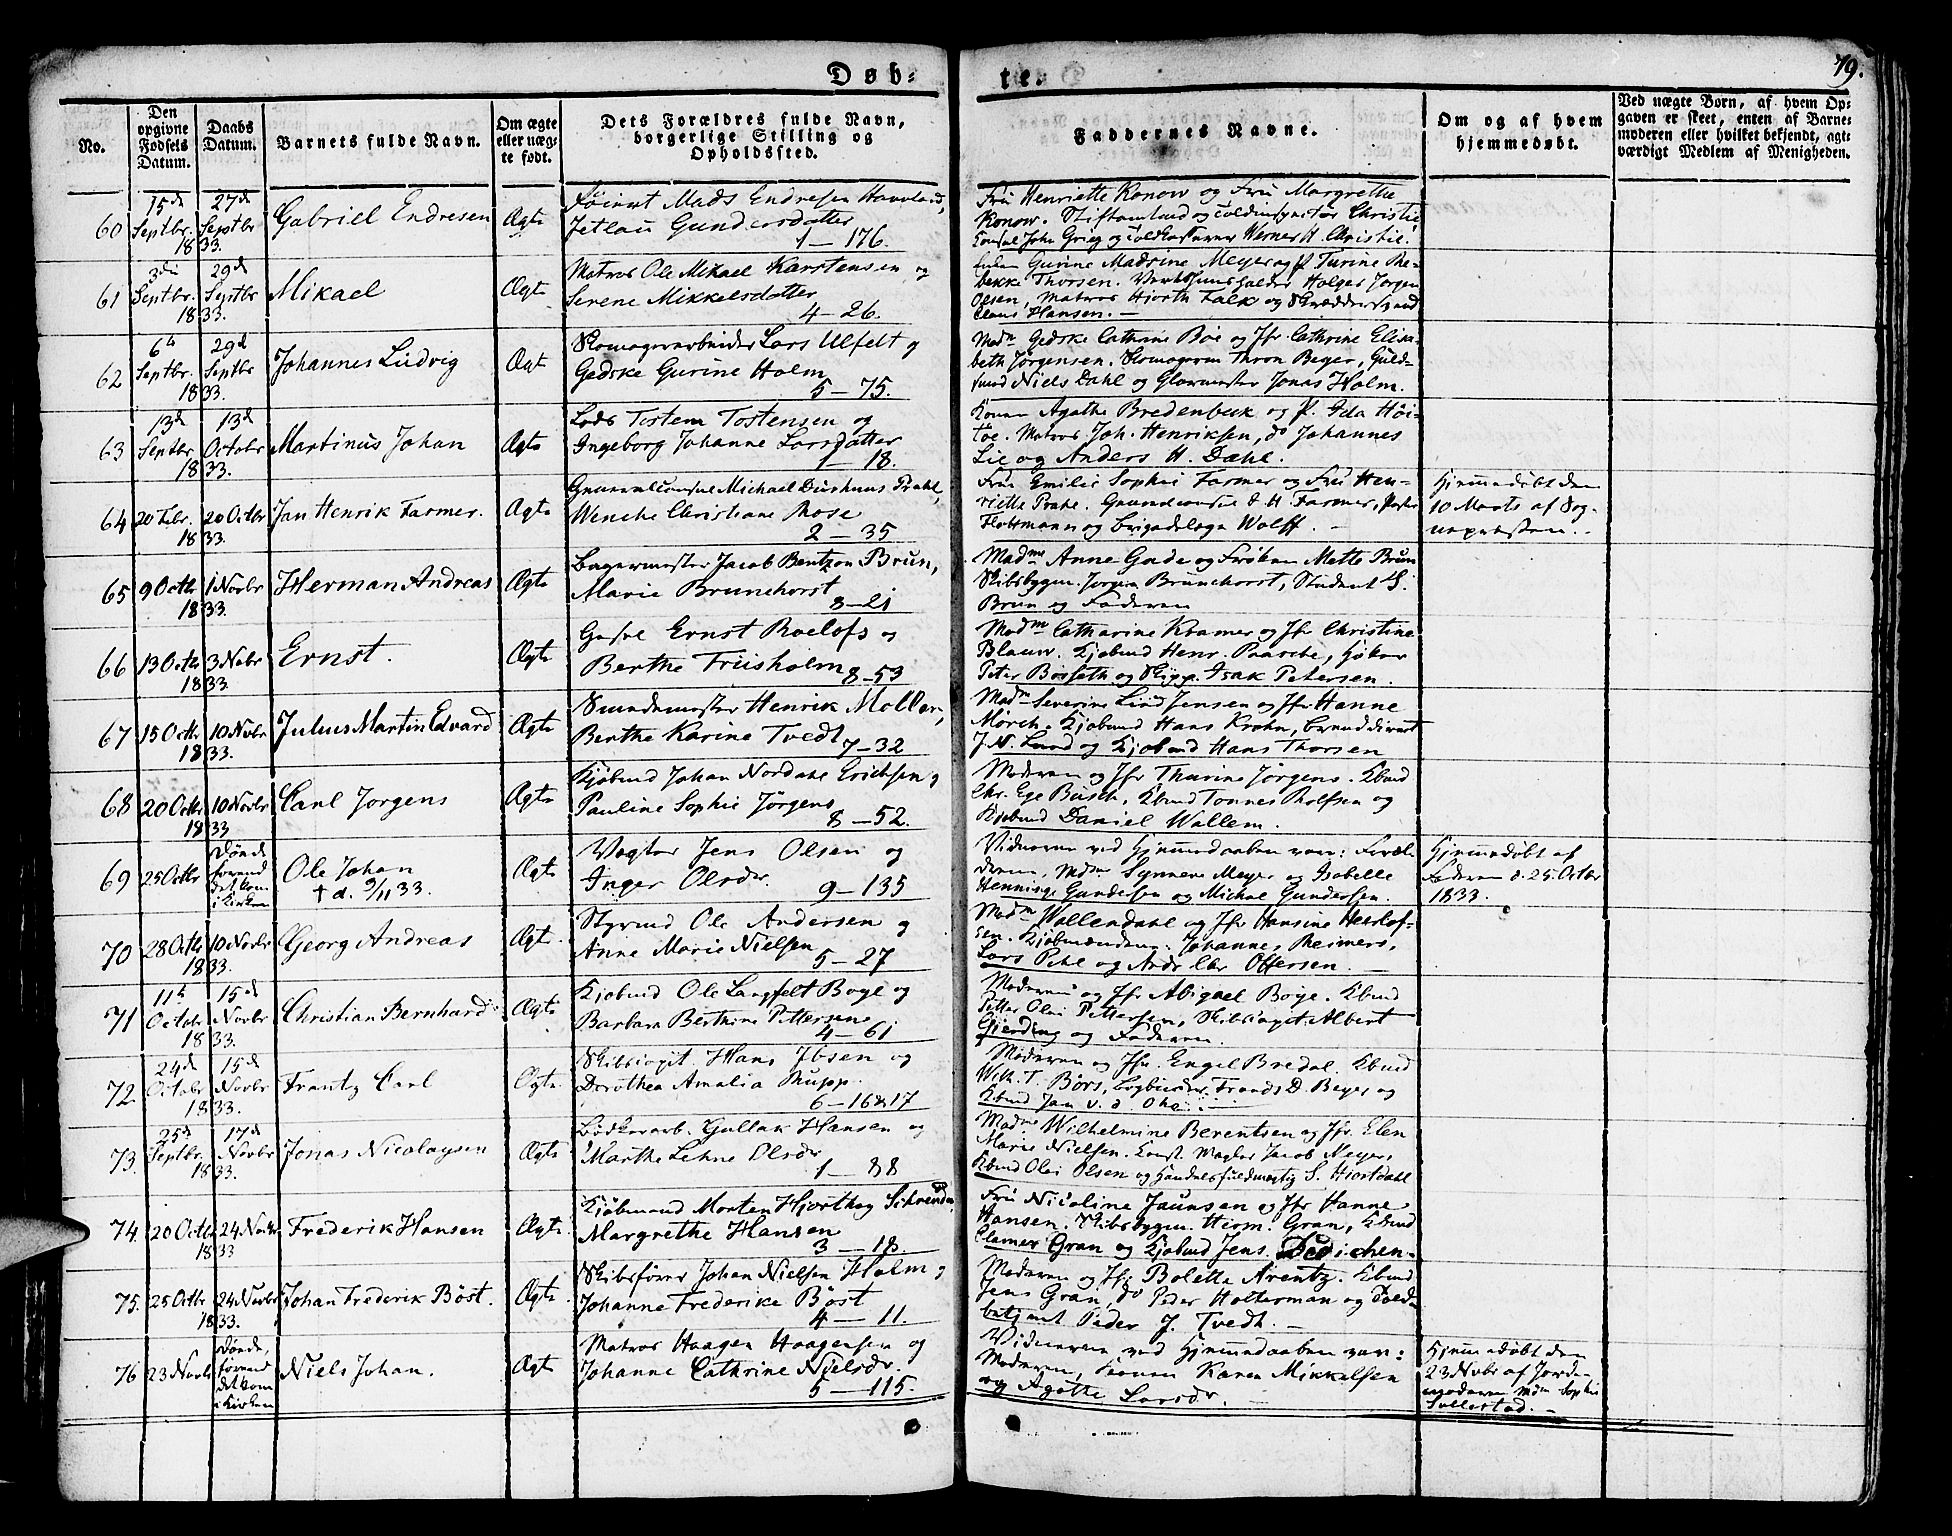 79.
Døb-
te.
No.
Den opgivne Fødsels Datum.
Daabs Datum.
Barnets fulde Navn.
Om ægte eller uæg-te født.
Dets Forældres fulde Navn, borgerlige Stilling og Opholdssted.
Faddernes Navne.
Om og af hvem hjemmedøbt.
Ved uægte Børn, af hvem Op-gaven er skeet, enten af Barne-moderen eller hvilket bekjendt, agt-værdigt Medlem af Menigheden.
60 15de Septbr. 1833. 27de Septbr
Gabriel Endresen
Ægte
Mads Endresen Haveland,
Gundersdatter
1 — 176.
Fru Henriette Konow og Fru Margrethe
Konow. Christie,
Consul John Grieg og Werner H. Christie.
61 3die Septbr. 1833. 29de Septbr
Mikael
Ægte
Matros Ole Mikael Karstensen og
Serene Mikkelsdatter
4 — 26.
Gurine Madsine Meyer og P. Turine Re-
bekke Thorsen. Holger Jørgen
Olsen, Matros Hjorth Falk og
Claus Hansen. —
62 6te Septbr. 1833. 29de Septbr
Johannes Ludvig
Ægt
Skomagerarbeider Lars Ulfelt og
Gedske Gurine Holm
5 — 75.
Madm Gedske Cathrine Boe og Jfr Cathrine Elisa-
beth Jørgensen. Skomagerm Thron Beyer, Guld-
smed Niels Dahl og Glarmester Jonas Holm.
63 13de Septbr. 1833. 13de Octobr
Martinus Johan
Ægte
Lods Tostem Tostensen og
Ingeborg Johanne Larsdatter
1 — 18.
Konen Agathe Bredenbeck og P. Ida Høi-
toe. Matros Joh. Henriksen, do Johannes
Lie og Anders H. Dæhl.
64 20 Febr. 1833. 20 Octbr
Jan Henrik Farmer.
Ægte
Generalconsul Michael Prahl,
Wenche Christiane Rose
2 — 35
Fru Emilie Sophie Farmer og Fru Hen-
riette Prahl. Generalconsul Farmer,
Flottmann og Brigadelæge Wolff. —
Hjemmedøbt den
10 Marts af Sog-
nepræsten.
65 9 Octbr 1833. 1 Novbr
Herman Andreas
Ægte
Bagermester Jacob Bentzon Brun,
Marie Brunchorst
8 — 21
Madme Anne Gade og Frøken Mette Brun
Skibsbygm. Jørgen Brunchorst, Student S.
Brun og Faderen
66 13 Octbr 1833. 3 Nobr
Ernst.
Ægte
Ernst Roelofs og
Berthe Friisholm
8 — 53
Madm Catharine Kramer og Jfr Christine
Blauw. Kjøbmd Henr. Paasche, Høker
Peter Bosseth og Skipp. Isak Petersen.
67 15 Octbr 1833. 10 Novbr
Julius Martin Edvard
Ægte
Smedemester Henrik Moller,
Berthe Karine Tvedt
7 — 32
Madm Severine Lind Jensen og Jfr Hanne
Mørch. Kjøbmd Hans Krohn,
J. N. Lund og Kjøbmd Hans Thorsen
68 20 Octbr 1833 10 Novbr
Carl Jørgens
Ægte
Kjøbmd Johan Nordahl Erichsen og
Pauline Sophie Jørgens
8 — 52.
Moderen og Jfr Thurine Jørgens. Kbmd
Chr. Ege Busch, Kbmd Tønnes Rolfsen og
Kjøbmd Daniel Wallem.
69 25 Octbr
Døde forend det kom i Kirken
Ole Johan
† d. 9/11 33.
Ægte
Vægter Jens Olsen og
Inger Olsdr.
9 — 135
Vidnerne ved Hjemmedaaben vare: Foræl-
drene, Mdm Synneve Meyer og Isabelle
Henninge Gundersen og Michael Gundersen.
Hjemmedøbt af
Faderen d. 25. Octbr
1833.
70 28 Octbr 1833. 10 Novbr
Georg Andreas
Ægte
Styrmd Ole Andersen og
Anne Marie Nielsen
5 — 27
Madm Wallendahl og Jfr Hansine Herlof-
sen. Kjøbmændene: Johannes Reimers,
Lars Pihl og Andr. Chr. Offersen. —
71 11te Octobr 1833. 15de Novbr
Christian Bernhard
Ægte
Kjøbmd Ole Langfelt Boye og
Barbara Berthine Pettersen
4 — 61
Moderen og Jfr Abigael Boye. Kbmd
Petter Olai Pettersen, Skibskapt. Albert
Gjerding og Faderen.
72. 24de Octobr 1833. 15de Novbr
Frantz Carl
Ægte.
Skibskapt. Hans Ibsen og
Dorothea Amalia Rupp.
6 — 16 & 17
Moderen og Jfr. Engel Bredal. Kbmd
Wilh. T. Børs, Bogbinder Frands D. Beyer og
Kbmd Jan v. d. Ohe. —
73. 25de Septbr. 1833. 17de Novbr
Jonas Nicolaysen
Ægte
Bødkerarb. Gullak Hansen og
Marthe Lehne Olsdr
1 — 88
Madme Wilhelmine Berentsen og Jfr. Elen
Marie Nielsen. Const. Mægler Jacob Meyer,
Kbmd Olai Olsen og Handelsfuldmægtig S. Hiortdahl
74. 20 Octbr 1833 24 Novbr
Frederik Hansen
Ægte
Kjøbmand Morten Hjorthøy
Margrethe Hansen
3 — 18.
Fru Nicoline Jaunsen og Jfr Hanne
Hansen. Skibsbygm. Herm. Gran, Kbmd
Clamer Gran og Kjøbmd Jens Dedichen.
75. 25 Octbr 1833. 24 Novbr
Johan Frederik Böst.
Ægte
Skibsfører Johan Nielsen Holm og
Johanne Frederike Böst
4 — 11.
Moderen og Jfr Boletta Arentz. Kbmd
Jens Gran, do Peder Holterman og Told-
betjent Peder J. Tvedt. —
76 23 Novbr
Døde, forend det kom i Kirken
Niels Johan.
Ægte
Matros Haagen Haagensen og
Johanne Cathrine Nielsdr.
5 — 115.
Vidnerne ved Hjemmedaaben vare:
Moderen, Konen Karen Mikkelsen
og Agathe Larsdr. —
Hjemmedøbt den
23 Novbr af Jorde-
moderen Mdm Sophie
Sollestad. —